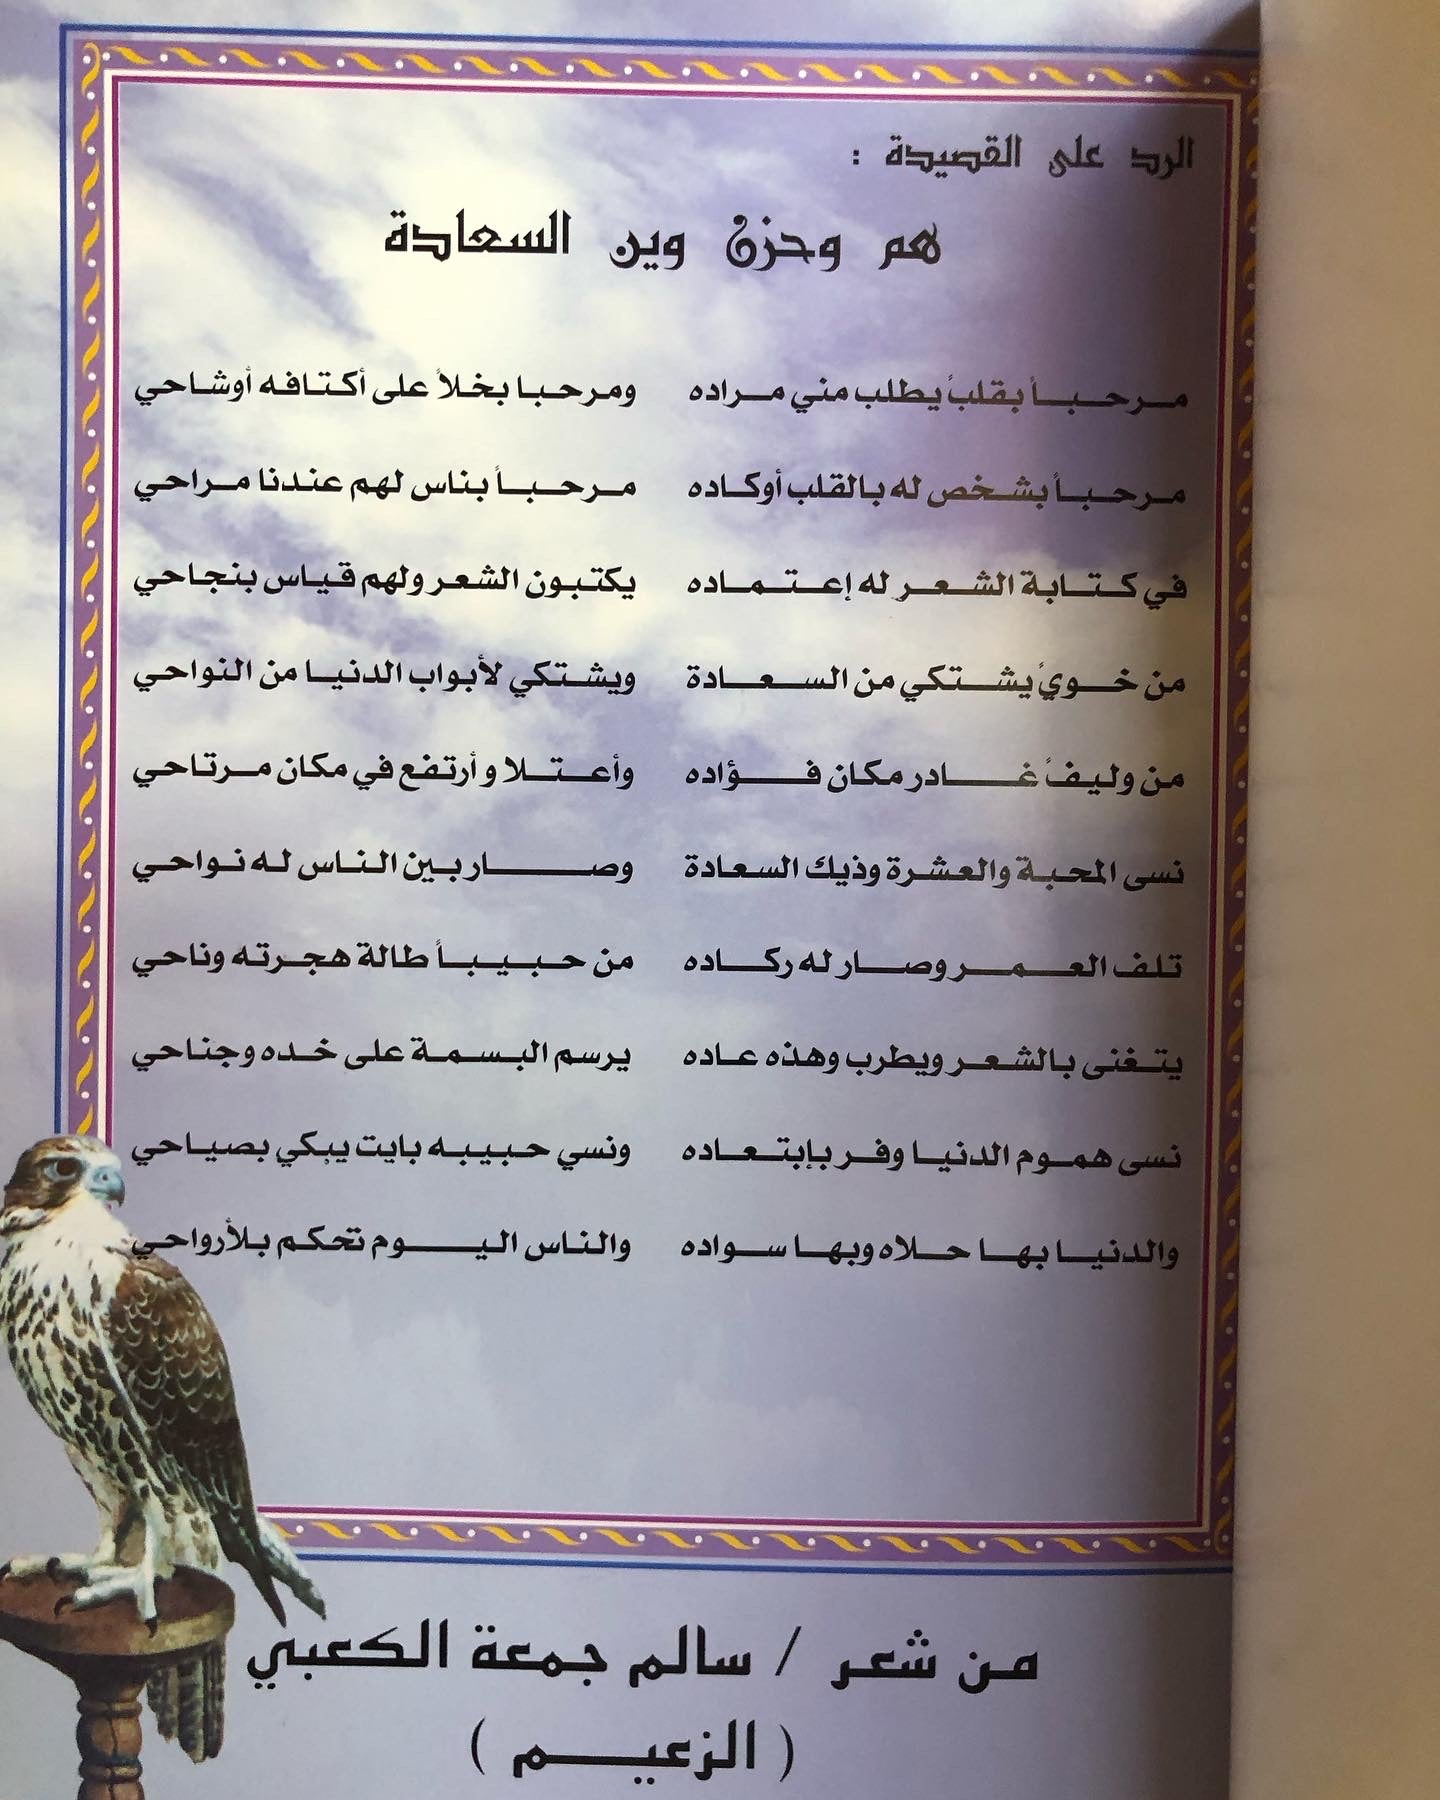 الرد على القصيدة :
هم وحزن وين السعادة
مرحبأ بقلبٔ يطلب مني مراده ومرحبا بخلأ على أكتافه أوشاحي
مرحبأ بشخص له بالقلب أوكاده مرحبأ بناس لهم عندنا مراحي
في كتابة الشعر له إعتماده يكتبون الشعر ولهم قياس بنجاحي
من خوئ يشتكي من السعادة ويشتكي لأبواب الدنيا من النواحي
من وليفٔ غادر مكان فؤاده وأعتلا و أرتفع في مكان مرتاحي
نسى المحبة والعشرة وذيك السعادة وصار بين الناس له نواحي
تلف العمر وصار له ركاده من حبيبأ طالة هجرته وناحي
يتغنى بالشعر ويطرب وهذه عاده يرسم البسمة على خده وجناحي
نسى هموم الدنيا وفر بإبتعاده ونسي حبيبه بايت يبكي بصياحي
والدنيا بها حلاه وبها سواده والناس اليوم تحكم بلأرواحي
من شعر / سالم جمعة الكعبي
( الزعيم )